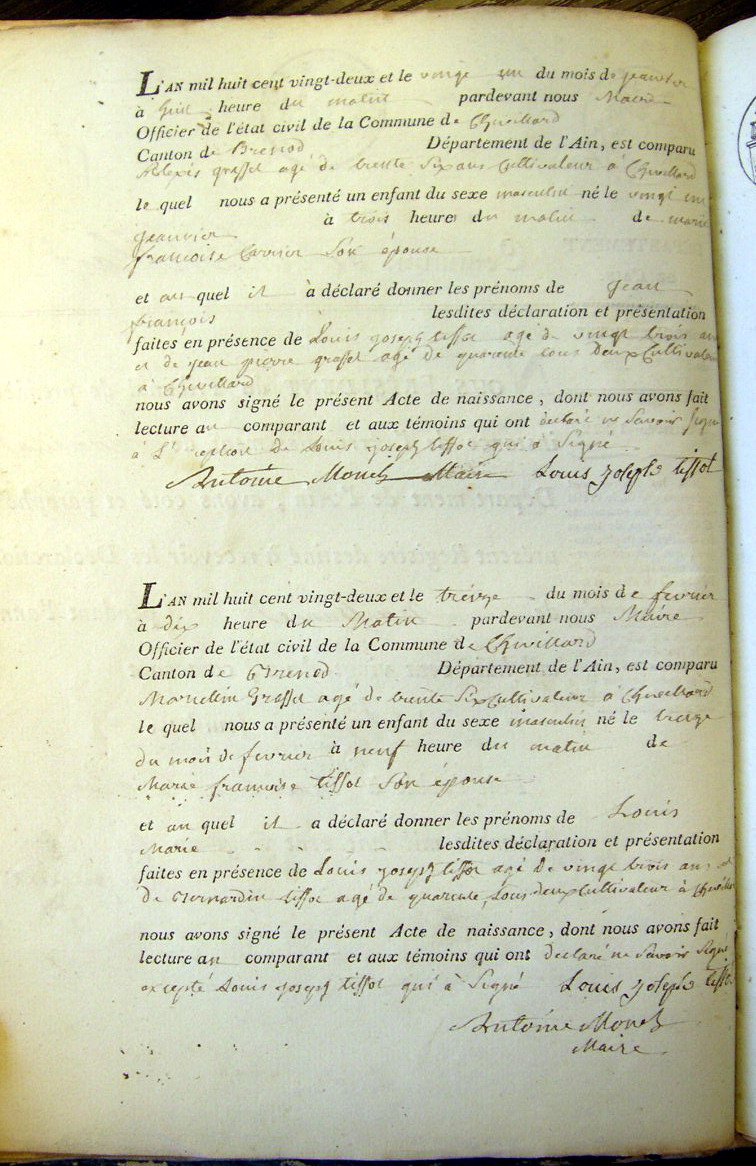 L'AN mil huit cent vingt-deux et le vingt un du mois de jeanvier
à huit heure du matin pardevant nous Maire
Officier de l'état civil de la Commune de Chevillard
Canton de Brenod Département de l'Ain, est comparu
Alexis grasset agé de trente six ans Cultivateur à Chevillard
le quel nous a présenté un enfant du sexe masculin né le vingt un
jeanvier à trois heures du matin de marie
francoise Carrier son épouse
et au quel il à déclaré donner les prénoms de Jean
françois lesdites déclaration et présentation
faites en présence de Louis joseph tissot agé de vingt trois ans
et de jean pierre grasset agé de quarente tous deux Cultivateur
à Chevillard
nous avons signé le présent Acte de naissance, dont nous avons fait
lecture au comparant et aux témoins qui ont déclaré ne savoir signe
à L' de Louis joseph tissot qui à Signé
Antoine Monet Maire Louis joseph tissot
L'AN mil huit cent vingt-deux et le treize du mois de fevrier
à dix heure du Matin pardevant nous Maire
Officier de l'état civil de la Commune de Chevillard
Canton de Brenod Département de l'Ain, est comparu
grasset agé de trente six Cultivateur à Chevillard
le quel nous a présenté un enfant du sexe masculin né le treize
du mois de fevrier à neuf heure du matin de
Marie francoise tissot son épouse
et au quel il a déclaré donner les prénoms de Louis
Marie lesdites déclaration et présentation
faites en présence de Louis joseph tissot agé de vingt trois ans et
de Bernardin tissot agé de quarente tous deux Cultivateur à Chevillard
nous avons signé le présent Acte de naissance, dont nous avons fait
lecture au comparant et aux témoins qui ont declaré ne savoir signé
excepté Louis joseph tissot qui à Signé Louis joseph tissot
Antoine Monet
Maire